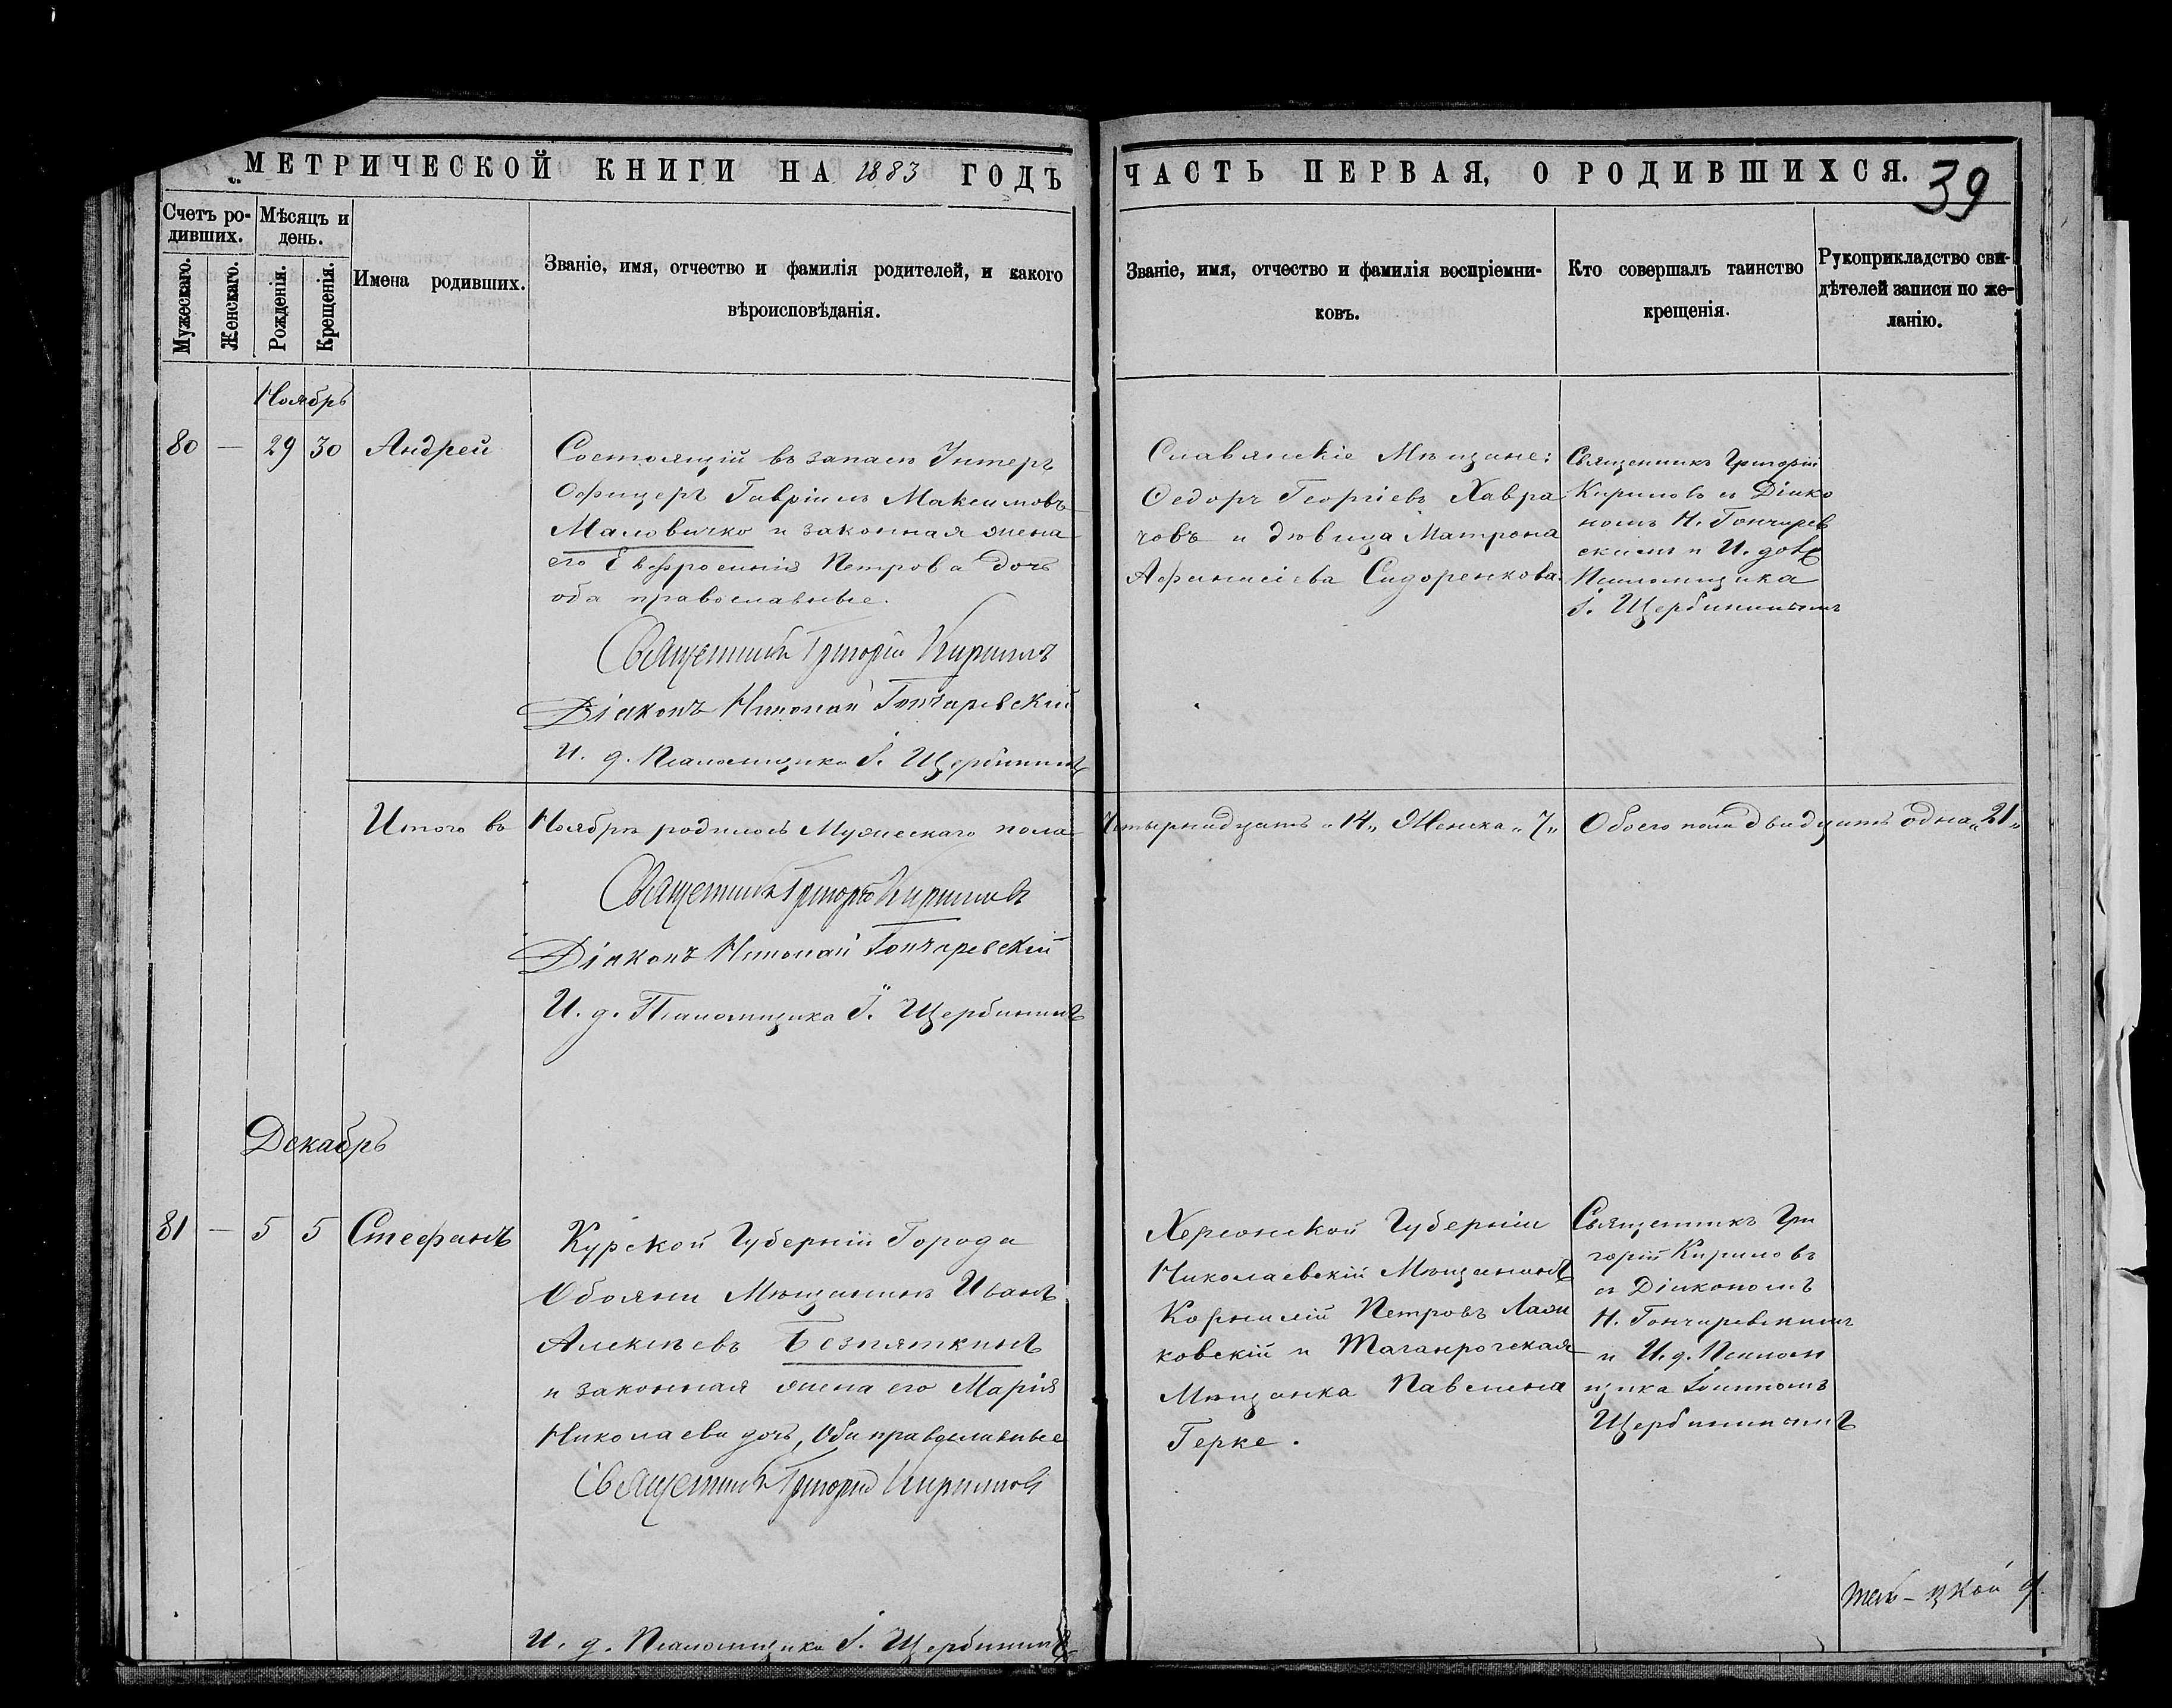 МЕТРИЧЕСКОЙ КНИГИ НА 1883 ГОДЪ
ЧАСТЬ ПЕРВАЯ, О РОДИВШИХСЯ.
39
Счетъ ро-
дивших.
Мѣсяцъ и
день.
Мужескаго.
Женскаго.
Рожденія.
Крещенія.
Имена родивших.
Званіе, имя, отчество и фамилія родителей, и какого
вѣроисповѣданія.
Званіе, имя, отчество и фамилія воспріемни-
ковъ.
Кто совершалъ таинство
крещенія.
Рукоприкладство сви-
дѣтелей записи по же-
ланію.
Ноябрь
80 — 29 30 Андрей
Состоящій въ запасѣ Унтеръ
Офицеръ Гавріилъ Максимовъ
Маловичко и законная жена
его Евфросинія Петрова дочь
оба православные.
Священникъ Григорій Кириловъ
Діаконъ Николай Гончаревскій
И. д. Псаломщика І. Щербининъ
Славянскіе Мѣщане:
Федоръ Георгіевъ Хавра
човъ и дѣвица Матрона
Афанасіева Сидоренкова.
Священникъ Григорій
Кириловъ съ Діако
номъ Н. Гончарев
скимъ и И. долж
Псаломщика
І. Щербининымъ
Итого въ Ноябрѣ родилось Мужескаго пола
Четырнадцать „14„ Женска „7„ Обоего пола двадцать одна „21„
Священникъ Григорій Кириловъ
Діаконъ Николай Гончаревскій
И. д. Псаломщика І. Щербининъ
Декабрь
81 — 5 5 Стефанъ
Курской Губерніи Города
Обояни Мѣщанинъ Иванъ
Алексѣевъ Безпяткинъ
и законная жена его Марія
Николаева дочь, Оба православные
Священникъ Григорій Кириловъ
И. д. Псаломщика І. Щербининъ
Херсонской Губерніи
Николаевскій Мѣщанинъ
Корнилій Петровъ
ковскій и Таганрогская
Мѣщанка Павлина
Герке.
Священникъ Гри
горій Кириловъ
съ Діакономъ
Н. Гончаревскимъ
и И. д. Псалом
щика Іоанномъ
Щербининымъ